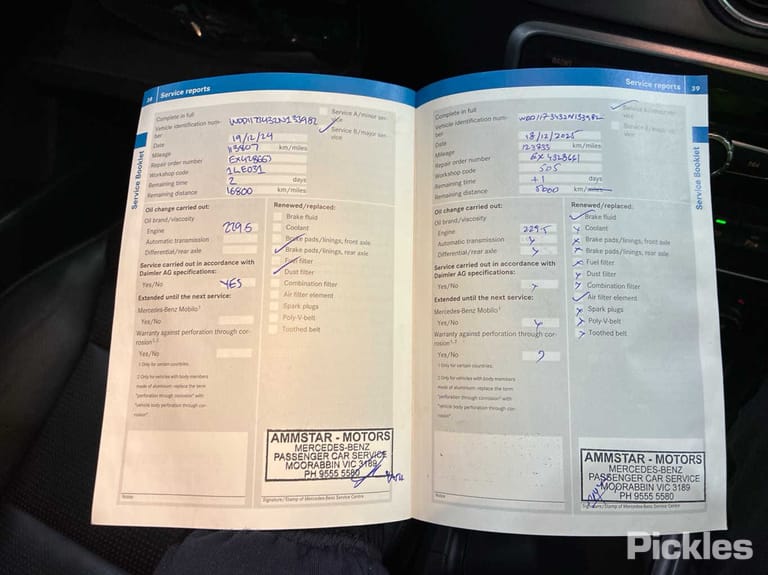 38 Service reports
Complete in full
Vehicle identification number
WDD1173432N133982
Date 19/12/24
Mileage 113807 km/miles
Repair order number
Workshop code 1LE031
Remaining time 2 days
Remaining distance 16800 km/miles
Service A/minor service
Service B/major service
Oil change carried out:
Oil brand/viscosity
Engine 229.5
Automatic transmission
Differential/rear axle
Service carried out in accordance with
Daimler AG specifications:
Yes/No YES
Extended until the next service:
Mercedes-Benz Mobilo¹
Yes/No
Warranty against perforation through corrosion¹˒²
Yes/No
1 Only for certain countries.
2 Only for vehicles with body members
made of aluminium: replace the term
"perforation through corrosion" with
"vehicle body perforation through corrosion".
Notes
Renewed/replaced:
Brake fluid
Coolant
Brake pads/linings, front axle
Brake pads/linings, rear axle
Fuel filter
Dust filter
Combination filter
Air filter element
Spark plugs
Poly-V-belt
Toothed belt
AMMSTAR - MOTORS
MERCEDES-BENZ
PASSENGER CAR SERVICE
MOORABBIN VIC 3189
PH 9555 5580
Signature/Stamp of Mercedes-Benz Service Centre
Service Booklet
Service reports 39
Complete in full
Vehicle identification number
WDD1173432N133982
Date 18/12/2025
Mileage 123733 km/miles
Repair order number
Workshop code 505
Remaining time +1 days
Remaining distance 5000 km/miles
Service A/minor service
Service B/major service
Oil change carried out:
Oil brand/viscosity
Engine 229.5
Automatic transmission
Differential/rear axle
Service carried out in accordance with
Daimler AG specifications:
Yes/No
Extended until the next service:
Mercedes-Benz Mobilo¹
Yes/No
Warranty against perforation through corrosion¹˒²
Yes/No
1 Only for certain countries.
2 Only for vehicles with body members
made of aluminium: replace the term
"perforation through corrosion" with
"vehicle body perforation through corrosion".
Notes
Renewed/replaced:
Brake fluid
Coolant
Brake pads/linings, front axle
Brake pads/linings, rear axle
Fuel filter
Dust filter
Combination filter
Air filter element
Spark plugs
Poly-V-belt
Toothed belt
AMMSTAR - MOTORS
MERCEDES-BENZ
PASSENGER CAR SERVICE
MOORABBIN VIC 3189
PH 9555 5580
Signature/Stamp of Mercedes-Benz Service Centre
Service Booklet
Pickles